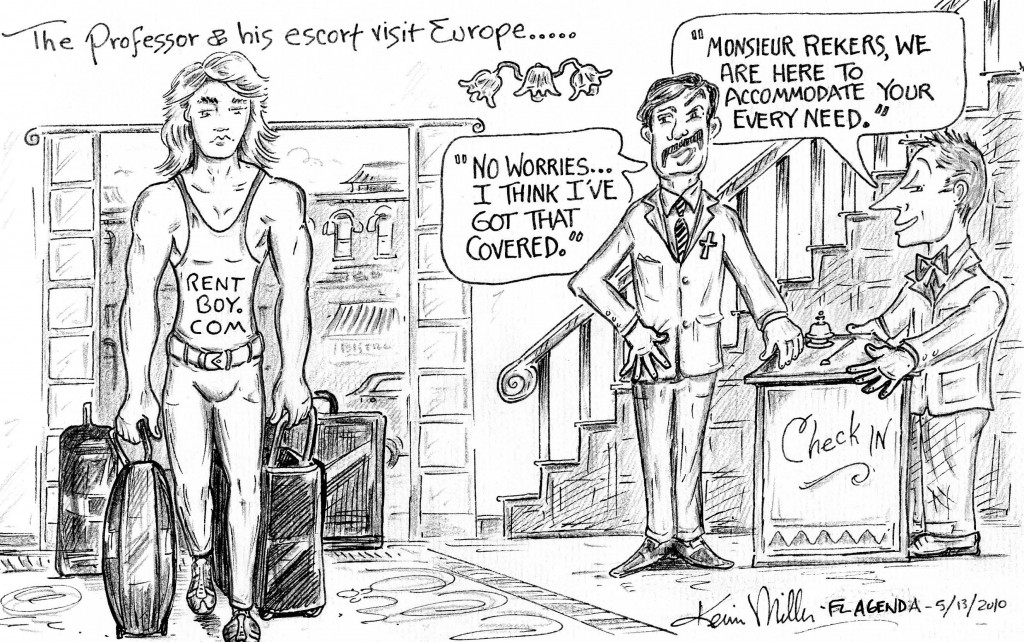 The Professor & his escort visit Europe.....
"MONSIEUR REKERS, WE
ARE HERE TO
ACCOMMODATE YOUR
EVERY NEED."
"NO WORRIES...
I THINK I'VE
GOT THAT
COVERED."
RENT
BOY.
COM
Check IN
Kevin Miller -FL AGENDA - 5/13/2010